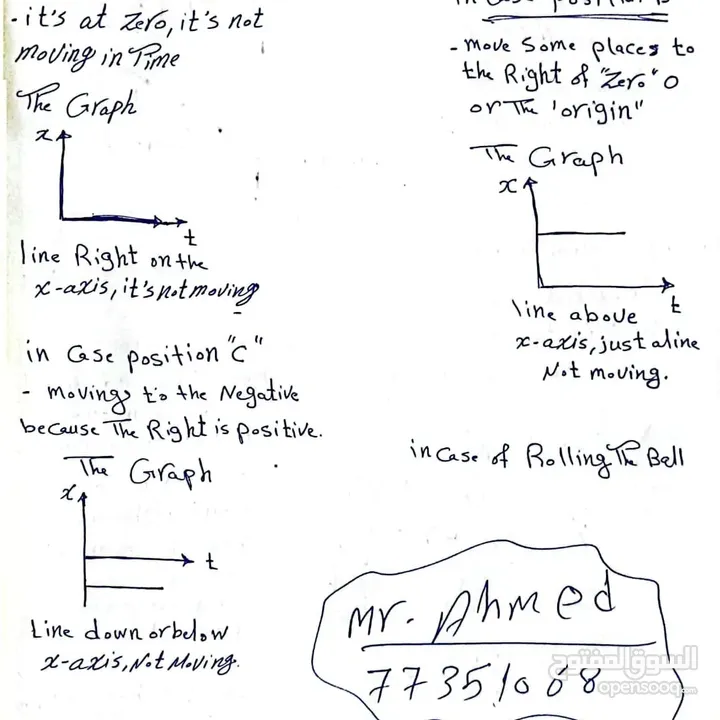 - it's at Zero, it's not
moving in Time
The Graph
x
t
line Right on the
x-axis, it's not moving
in Case position "C"
- moving to the Negative
because The Right is positive.
The Graph
x
t
Line down or below
x-axis, Not Moving.
in Case position
- move Some places to
the Right of "Zero" 0
or The 'origin"
The Graph
x
t
line above
x-axis, just a line
Not moving.
in Case of Rolling The Ball
Mr. Ahmed
77351068
السوق المفتوح
opensooq.com